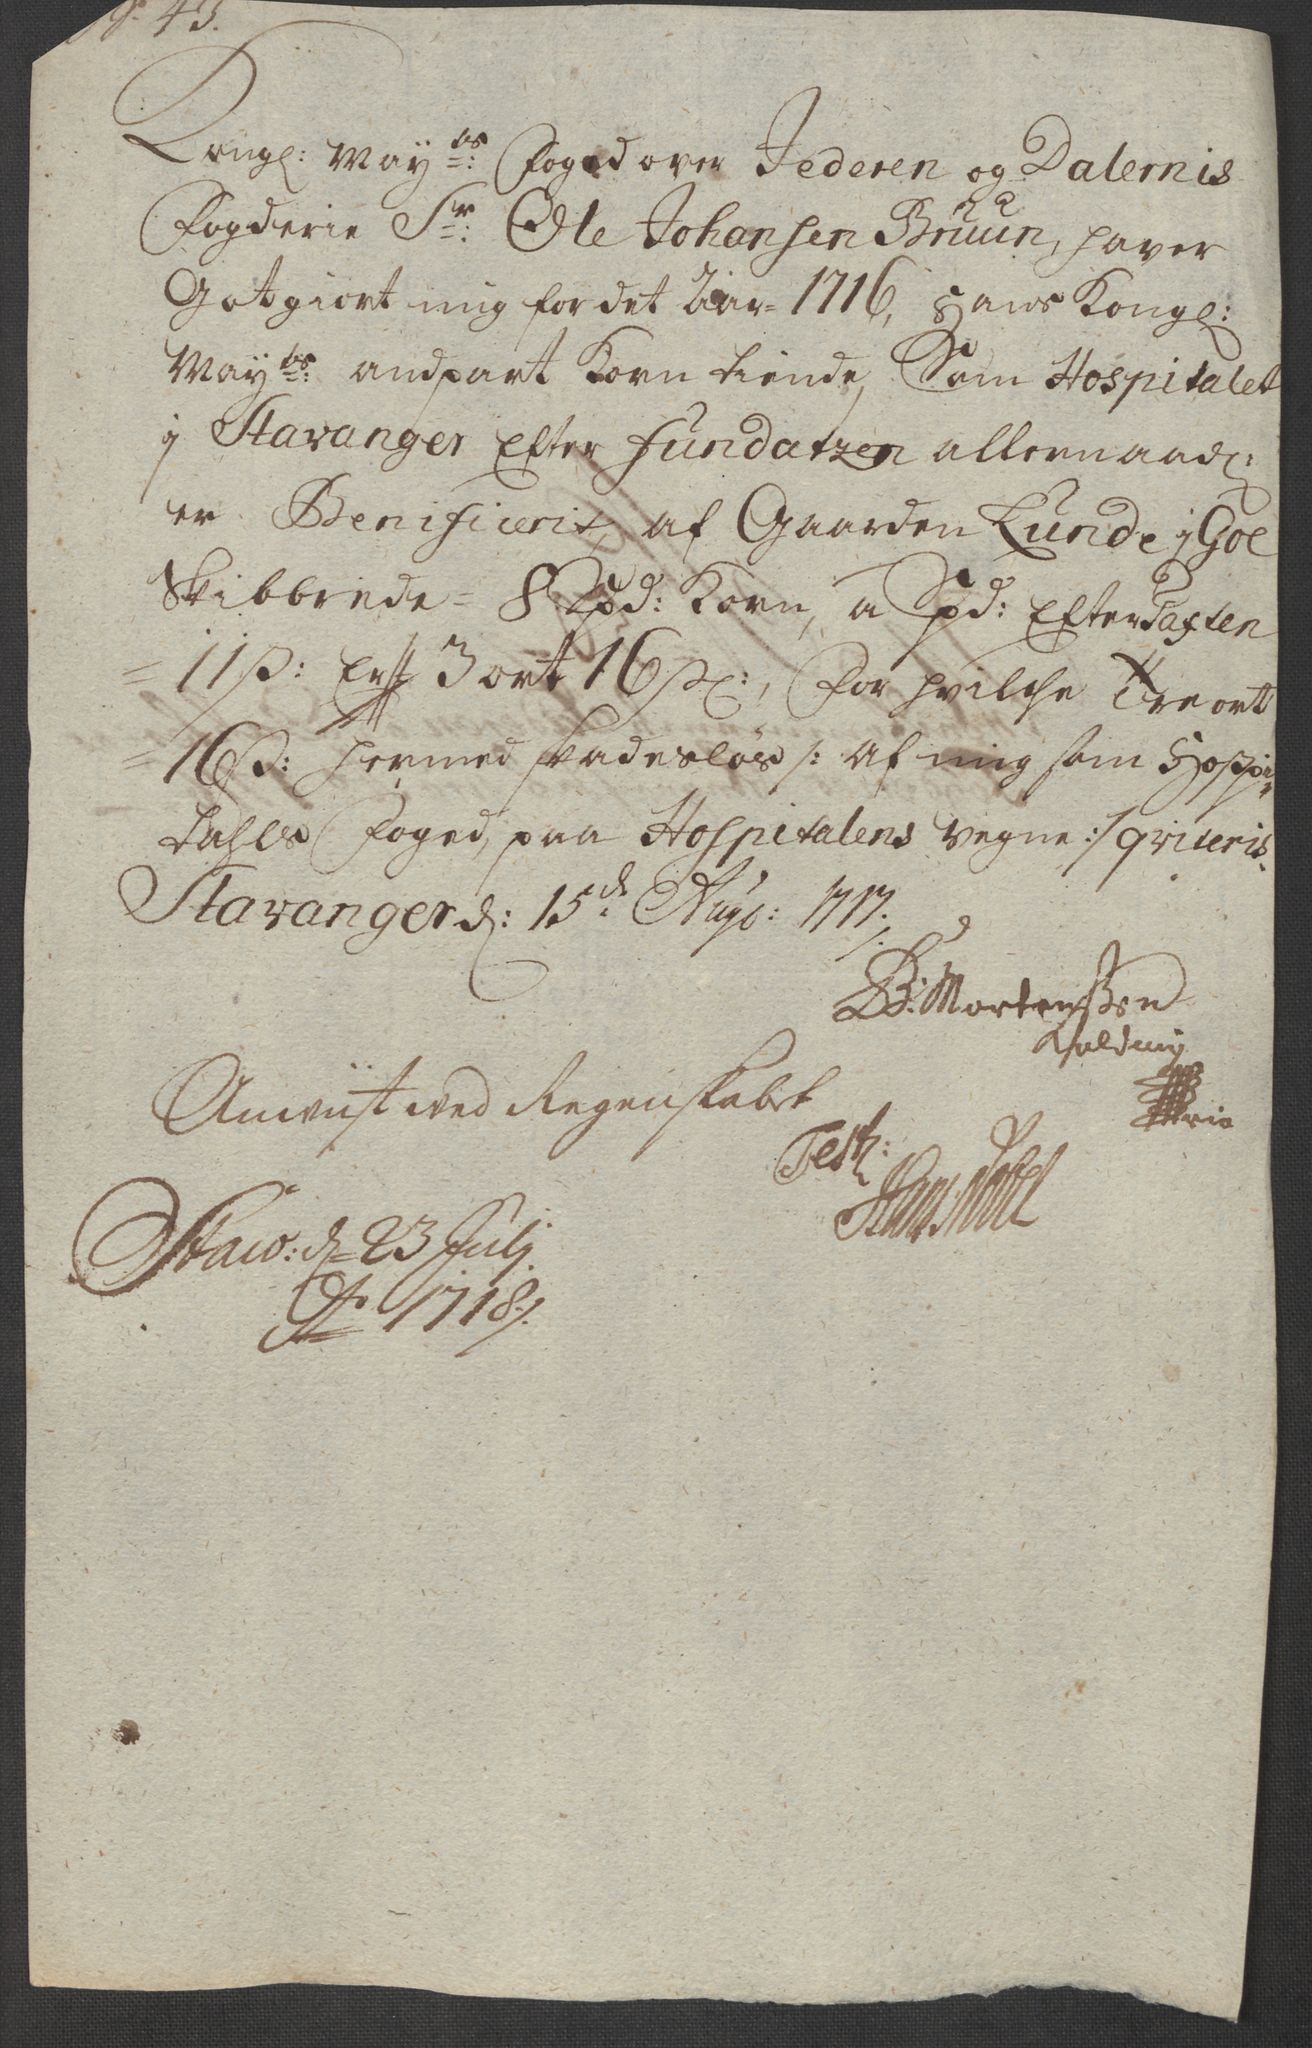 No 43.
Kongl: Mayts: Foged over Jederen og Dalernis
Fogderie Sr: Ole Johansen Bruun, haver
Gotgiort mig for det Aar= 1716, Hans Kongl:
Mayts: andpart Korn tiende, Som Hospitalet
j Stavanger Efter Fundatzen allernaadl:
er Benificerit, af Gaarden Lunde j Goe
Skibbrede= 8 Spd: Korn, a Spd: Efter Taxten
= 11 s: Er 3 ort 16 s:, For hvilche Tre ort
= 16 s: hermed skadesløs /: af mig som Hospi=
tahls Foged, paa Hospitalens vegne :/ qviteris.
Stavanger d: 15de Augs: 1717.
B: Mortensen
Kolding
Anviist ved Regenskabet
Test:
Stavs: d= 23 Julj
Ao 1718.